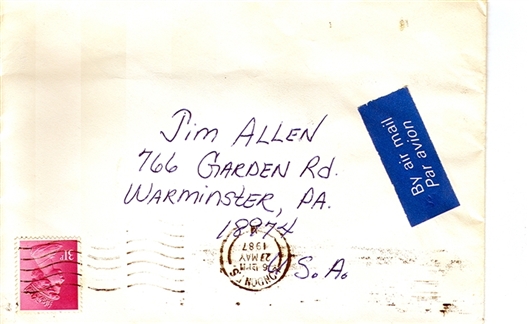 Jim ALLEN
766 GARDEN Rd.
WARMINSTER, PA.
18974
U.S.A.
By air mail
Par avion
LONDON
27 MAY
1987
31P